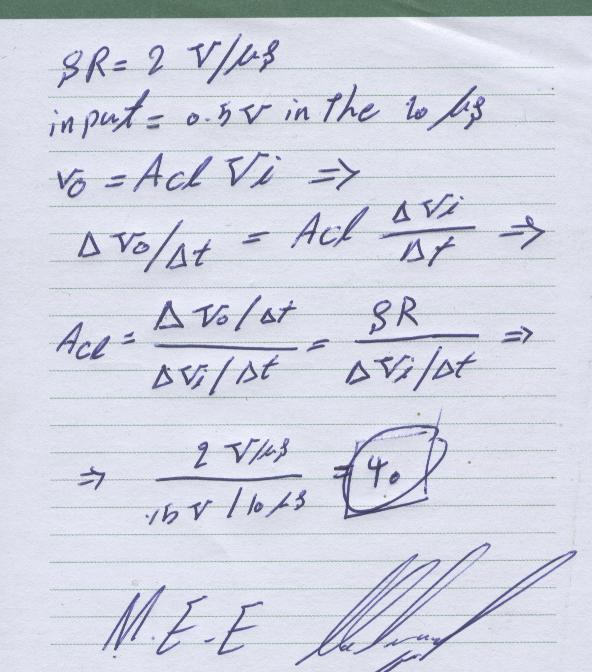 SR = 2 V/μs
input = 0.5V in the 10 μs
Vo = Acl Vi ⇒
ΔVo/Δt = Acl ΔVi/Δt ⇒
Acl = (ΔVo/Δt)/(ΔVi/Δt) = SR/(ΔVi/Δt) ⇒
⇒ (2 V/μs)/(.5 V/10 μs) = 40
M.E.E